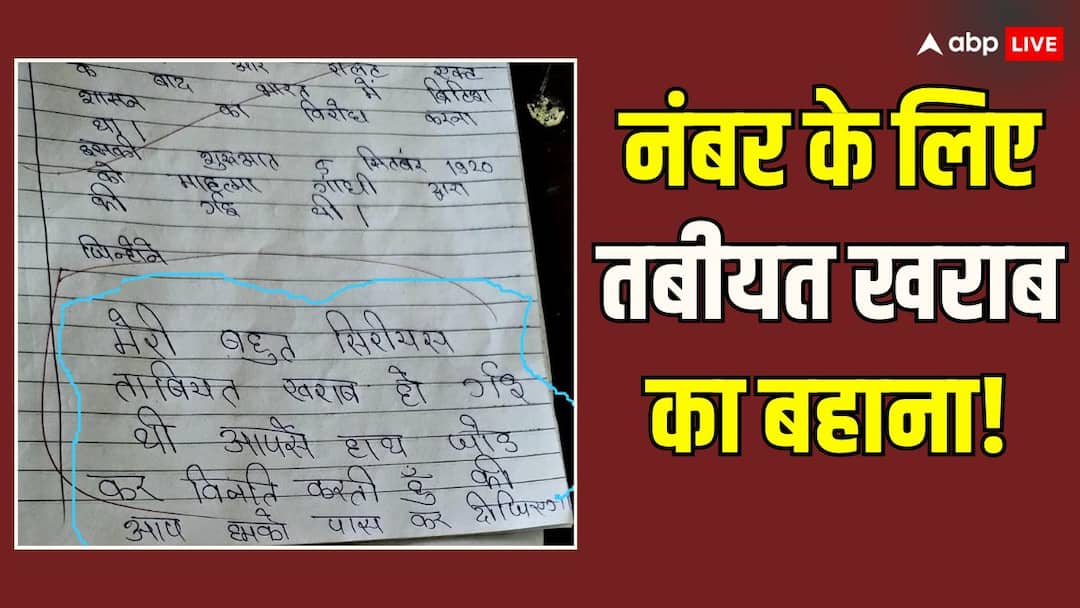 के बाद और सॉल्ट एक्ट
शासन भारत में ब्रिटिश
था। का विरोध करना
इसकी शुरुआत 5 सितंबर 1920
को माहत्मा गाँधी द्वारा
की गई थी।
जिन्होंने
मेरी बहुत सिरीयस
ताबियत खराब हो गई
थी आपसे हाथ जोड
कर विनति करती हूँ की
आप हमको पास कर दीजिएगा
abp LIVE
नंबर के लिए
तबीयत खराब
का बहाना!